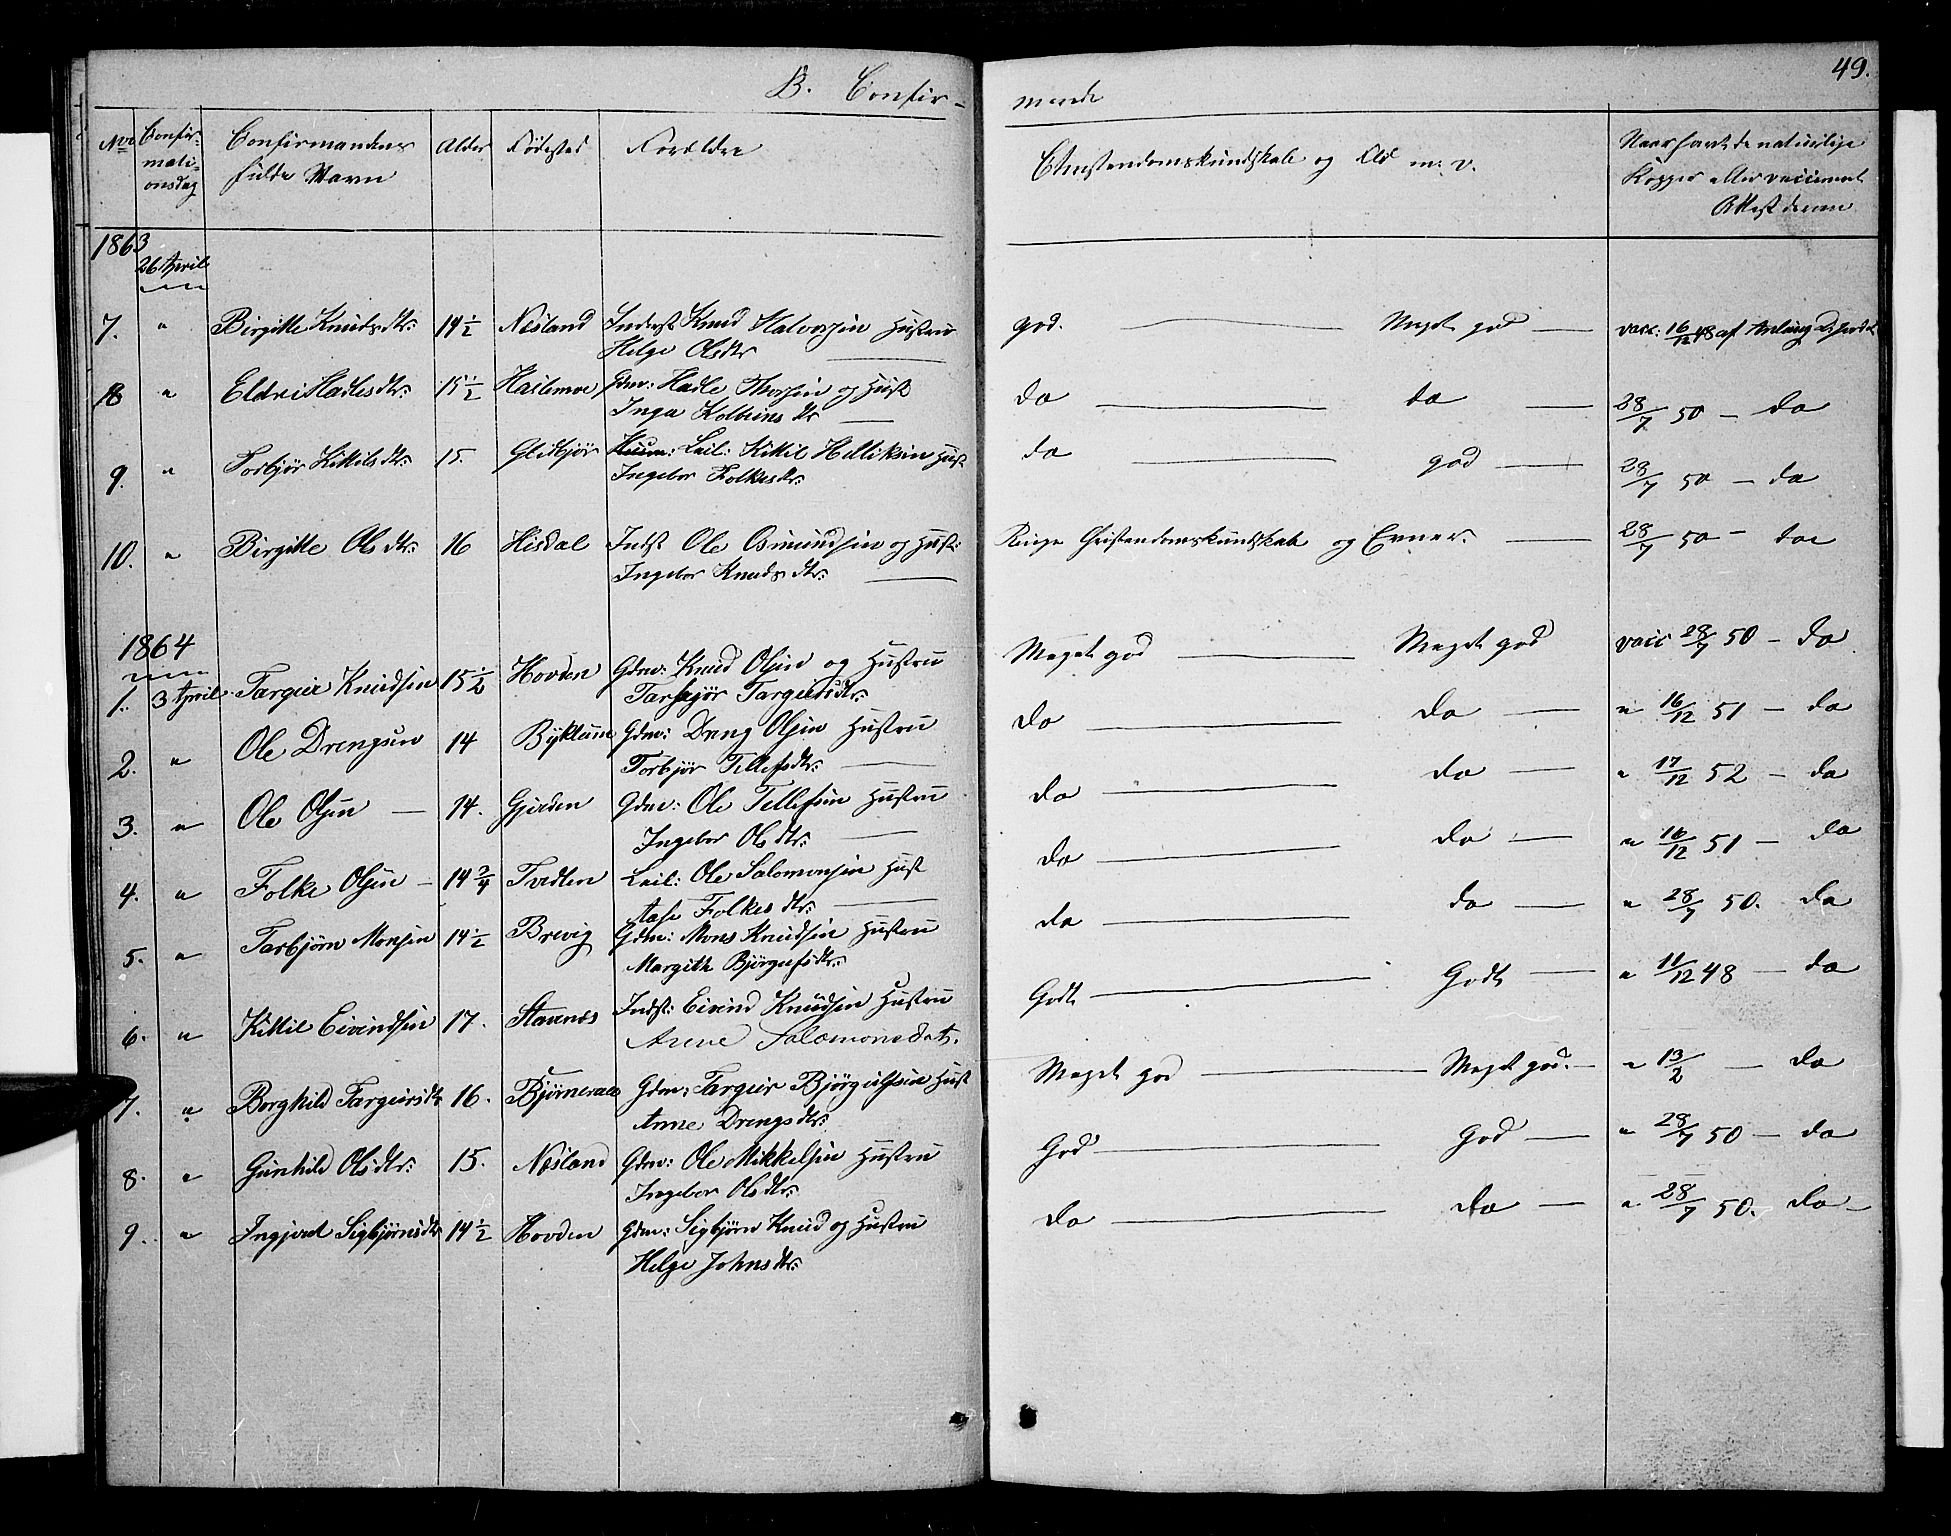 B. Confir-
mande
49.
No Confir-mati-onsdag Confirmandens fulde Navn Alder Fødested Forældre
Christendomskundskab og Flid m. v.
Naar havt de naturlige Kopper eller vaccineret Attest derom
1863
26 April
7. " Birgitte Knudsdtr: 14 1/2 Næsland Inderst Knud Halvorsen Hustru
Helge Olsdtr
god. Meget god vacc: 16/12 48 af
8 " Eldri Hadlesdtr: 15 1/2 Haslemoe Gdm: Hadle Thorsen og Hust
Inga Kolbeinsdtr
do do 28/7 50 - do
9. " Torbjør Kittilsdtr: 15. Glidbjør Leil: Kittil Helliksen Hust
Ingebor Folkesdtr:
do god 28/7 50 - do
10. " Birgitte Olsdtr: 16 Hisdal Indst Ole Osmundsen og Hust:
Ingebor Knudsdtr:
Ringe Christendomskundskab og Evner. 28/7 50 - do
1864
1. 3 April Targeir Knudsen 15 1/2 Hovden Gdm: Knud Olsen og Hustru
Targeirsdtr:
Meget god Meget god vacc 28/7 50 - do
2. " Ole Drengsen 14 Bykle Gdm: Dreng Olsen Hustru
Torbjør Tellefsdtr:
do do " 16/12 51 - do
3. " Ole Olsen 14. Gjerden Gdm: Ole Tellefsen Hustru
Ingebor Olsdtr:
do do " 17/12 52 - do
4. " Folke Olsen 14 3/4 Tveiten Leil: Ole Salomonsen Hust
Aase Folkesdtr:
do do " 16/12 51 - do
5. " Tarbjørn Monsen 14 1/2 Brevig Gdm: Mons Knudsen Hustru
Margith Bjørgufsdtr:
do do " 28/7 50. do
6. " Kittil Eivindsen 17. Stavenes Indst: Eivind Knudsen Hustru
Anne Salomonsdat.
Godt Godt " 11/12 48 - do
7. " Borghild Targeirsdtr 16. Bjørneraae Gdm: Targeir Bjørgulfsen Hust
Anne Drengsdtr:
Meget god Meget god. " 13/2 - do
8. " Gunhild Olsdtr: 15. Næsland Gdm: Ole Mikkelsen Hustru
Ingebor Olsdtr:
God God " 28/7 50 - do
9. " Ingjerd Sigbjørnsdtr 14 1/2 Hovden Gdm: Sigbjørn Knud og Hustru
Helge Johnsdtr:
do do " 28/7 50. do